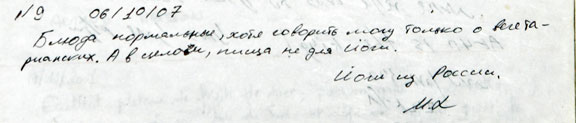 N9 06/10/07
Блюда нормальные, хотя говорить могу только о вегета-
рианских. А в целом, пища не для йоги.
Йоги из России.